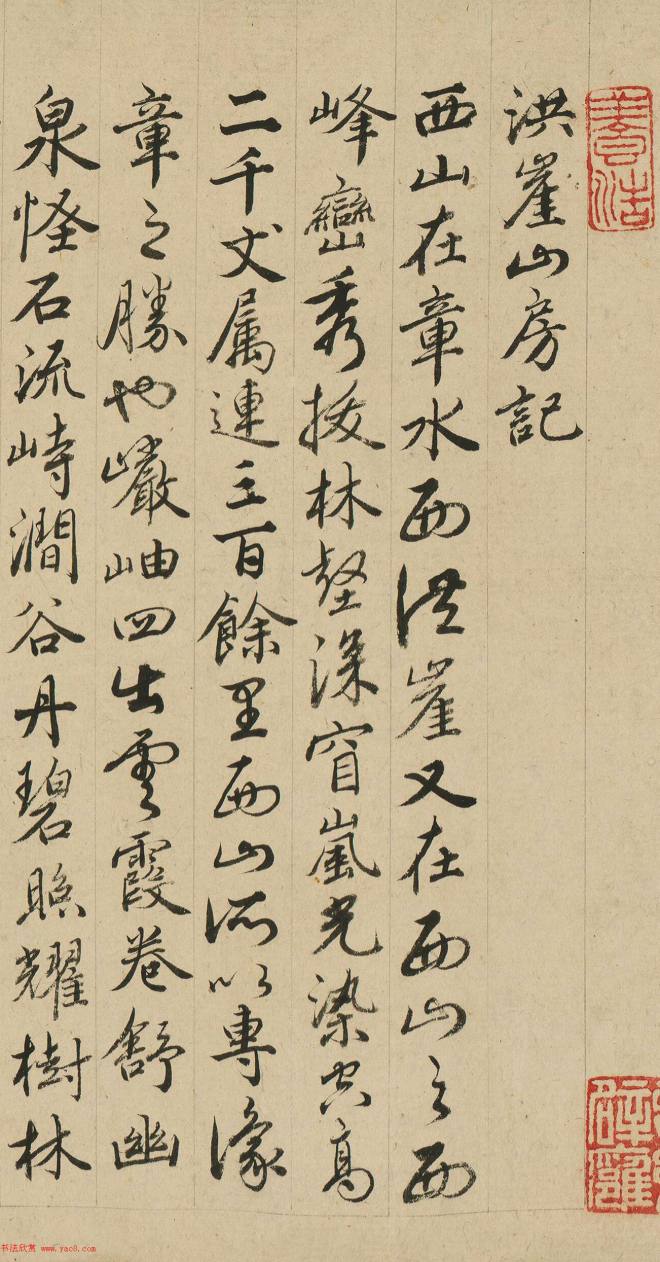 洪崖山房記
西山在章水西洪崖又在西山之西
峰巒秀拔林壑深窅嵐光染空高
二千丈属連三百餘里西山所以專豫
章之勝也巖岫四出雲霞卷舒幽
泉怪石流峙澗谷丹碧照耀樹林
书法欣赏 www.yac8.com